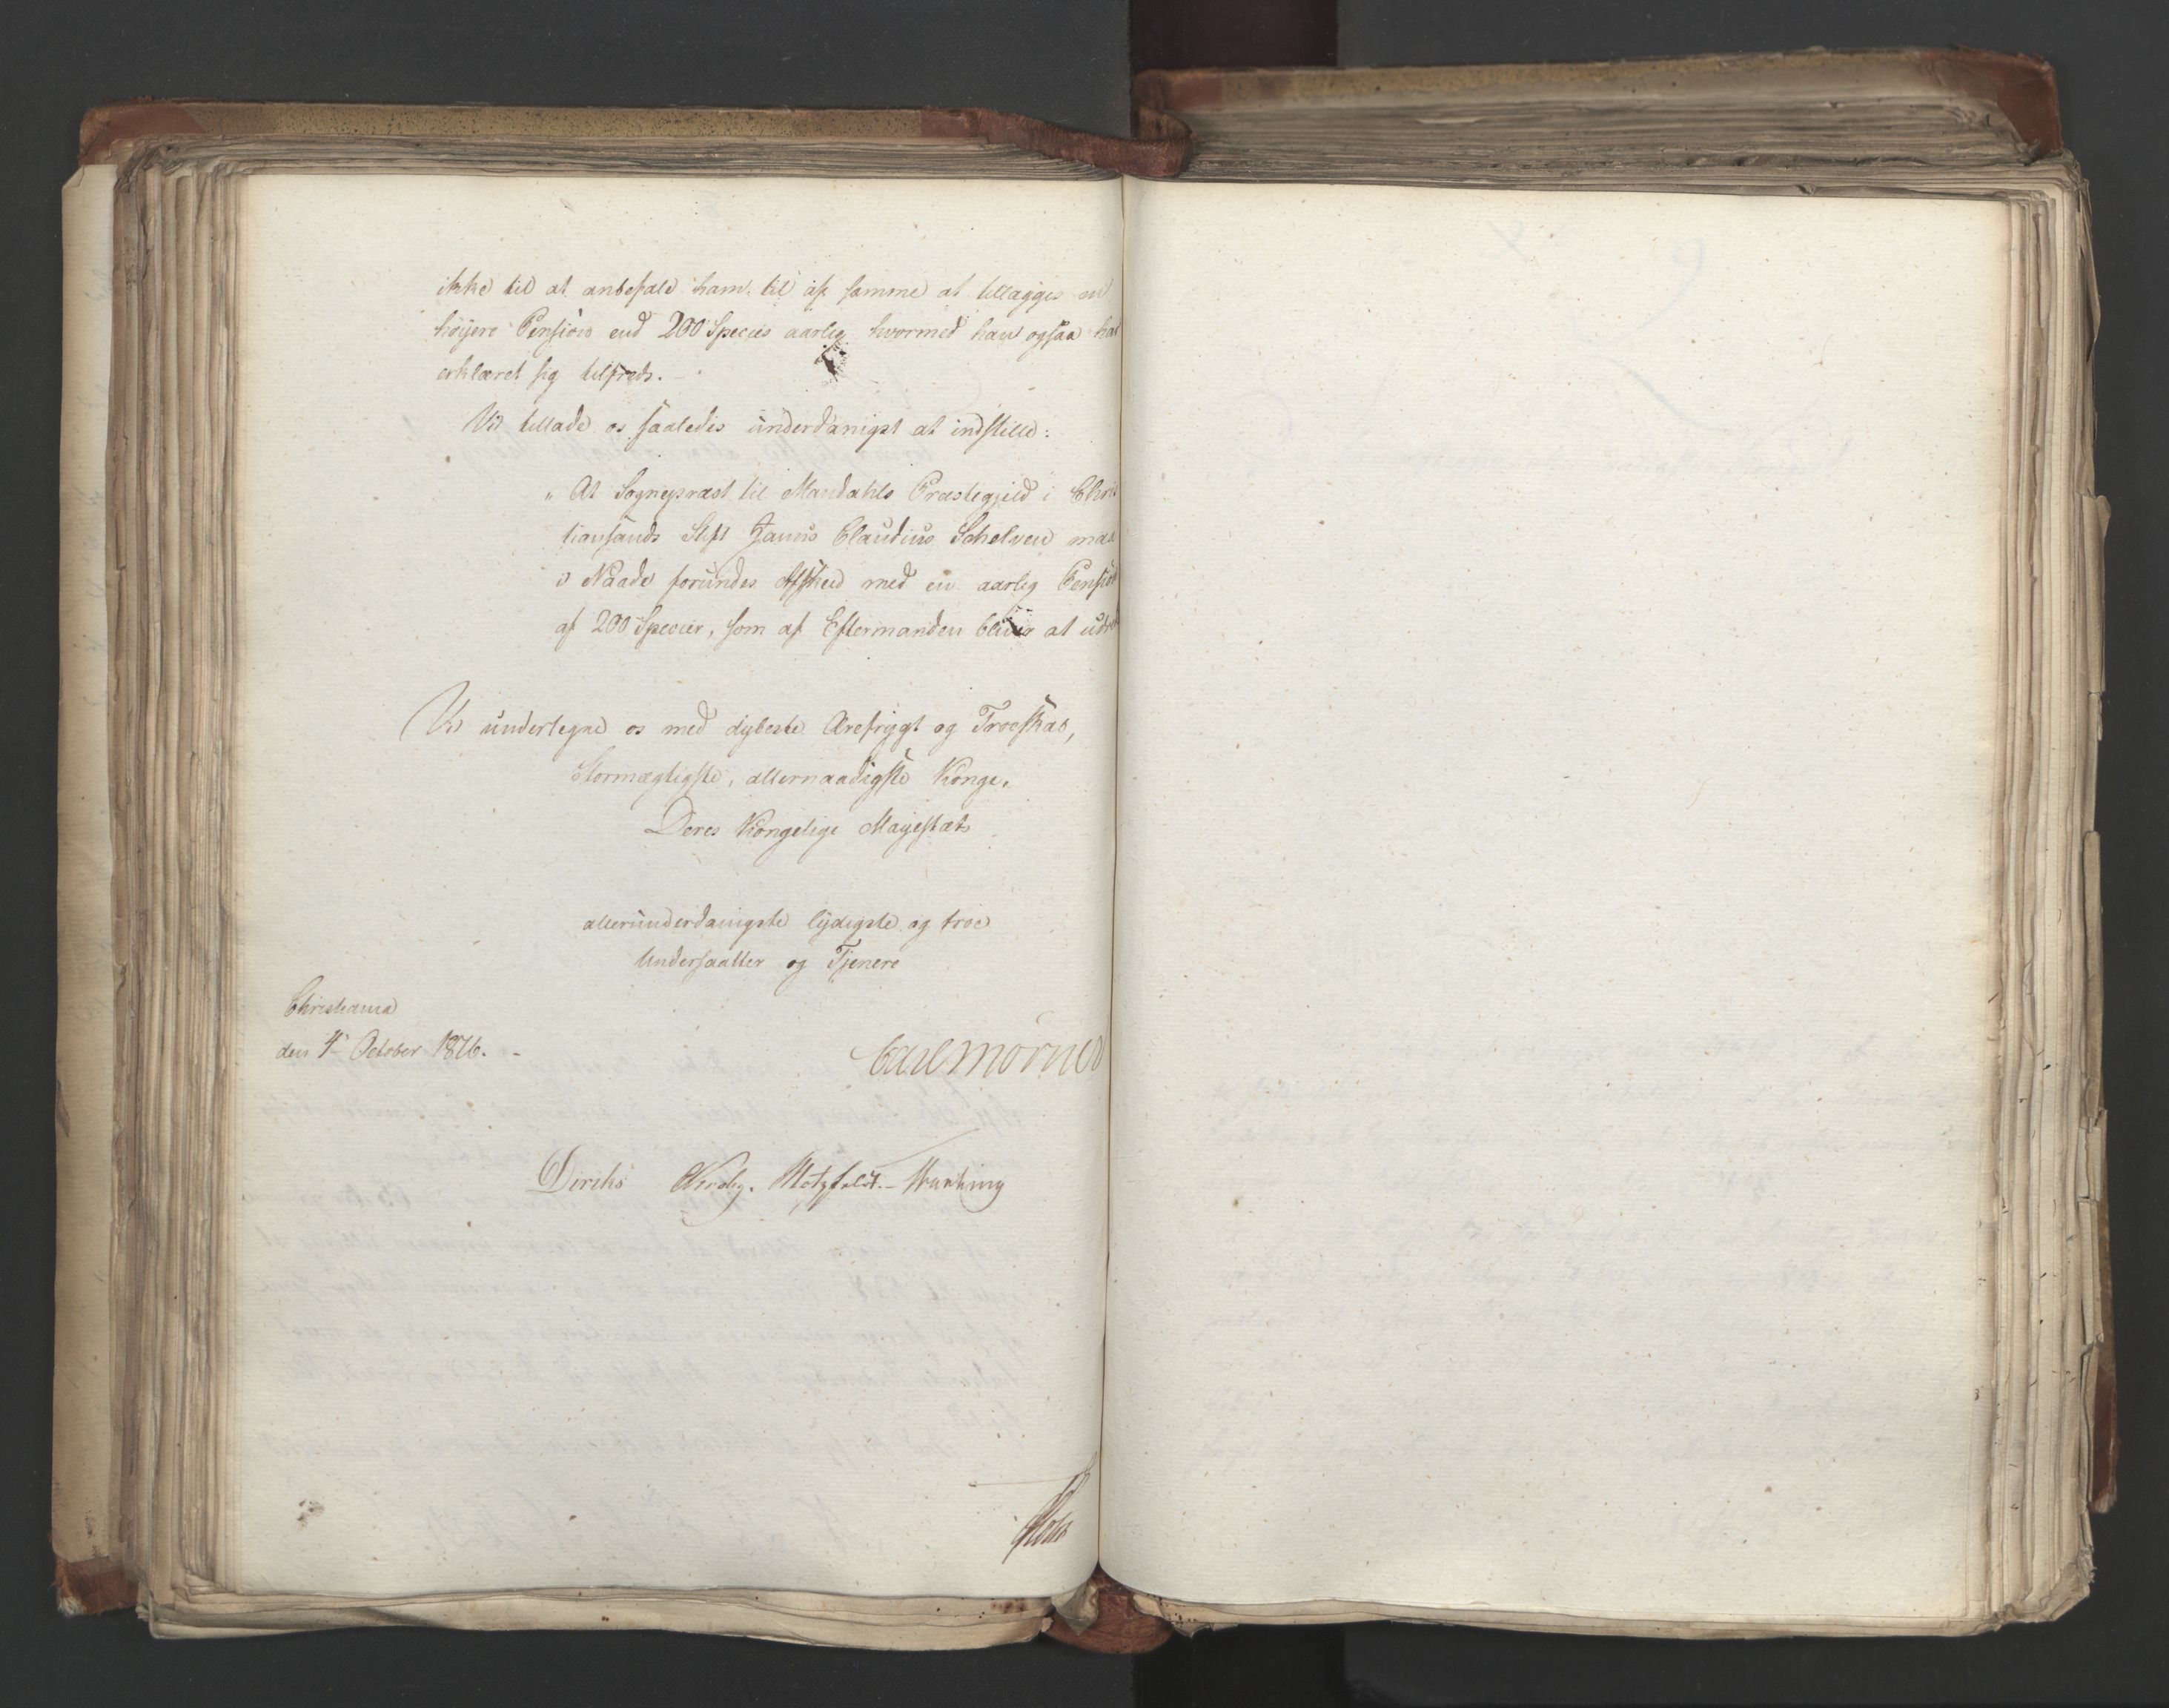 ikke til at anbefale ham til af samme at tillægges en
høiere Pension end 200 Species aarlig hvormed han ogsaa har
erklæret sig tilfreds.
Vi tillade os saaledes underdanigst at indstille:
„At Sognepræst til Mandahls Præstegjeld i Chris
tiansands Stift Claudius Schelven maa
i Naade forundes Afskeed med en aarlig Pension
af 200 Species, som af Eftermanden bliver at
Vi undertegne os med dybeste Ærefrygt og Troeskab,
Stormægtigste, allernaadigste Konge,
Deres Kongelige Majestæts
allerunderdanigste lydigste og troe
Undersaatter og Tjenere
Christiania
den 4de October 1816.
Carl Mörner
Diriks Krebs. Motzfeldt.